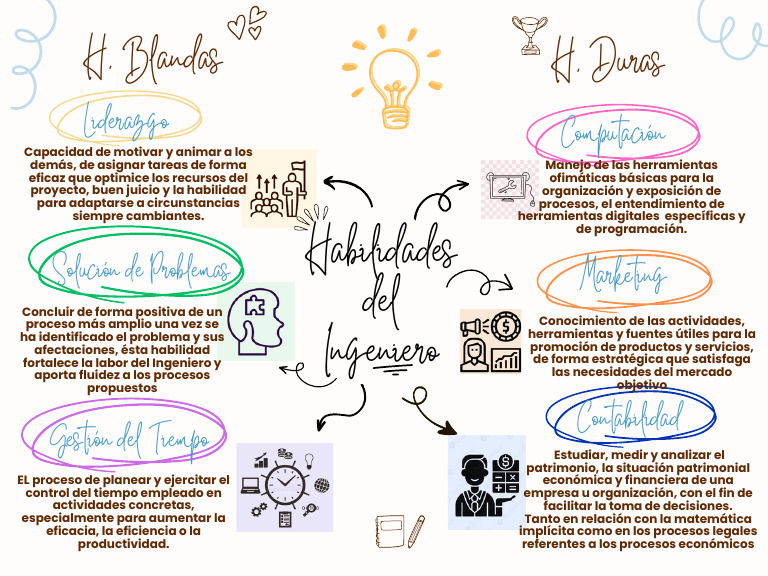 H. Blandas
Liderazgo
Capacidad de motivar y animar a los
demás, de asignar tareas de forma
eficaz que optimice los recursos del
proyecto, buen juicio y la habilidad
para adaptarse a circunstancias
siempre cambiantes.
Solución de Problemas
Concluir de forma positiva de un
proceso más amplio una vez se
ha identificado el problema y sus
afectaciones, ésta habilidad
fortalece la labor del Ingeniero y
aporta fluidez a los procesos
propuestos
Gestión del Tiempo
EL proceso de planear y ejercitar el
control del tiempo empleado en
actividades concretas,
especialmente para aumentar la
eficacia, la eficiencia o la
productividad.
Habilidades
del
Ingeniero
H. Duras
Computación
Manejo de las herramientas
ofimáticas básicas para la
organización y exposición de
procesos, el entendimiento de
herramientas digitales específicas y
de programación.
Marketing
Conocimiento de las actividades,
herramientas y fuentes útiles para la
promoción de productos y servicios,
de forma estratégica que satisfaga
las necesidades del mercado
objetivo
Contabilidad
Estudiar, medir y analizar el
patrimonio, la situación patrimonial
económica y financiera de una
empresa u organización, con el fin de
facilitar la toma de decisiones.
Tanto en relación con la matemática
implícita como en los procesos legales
referentes a los procesos económicos